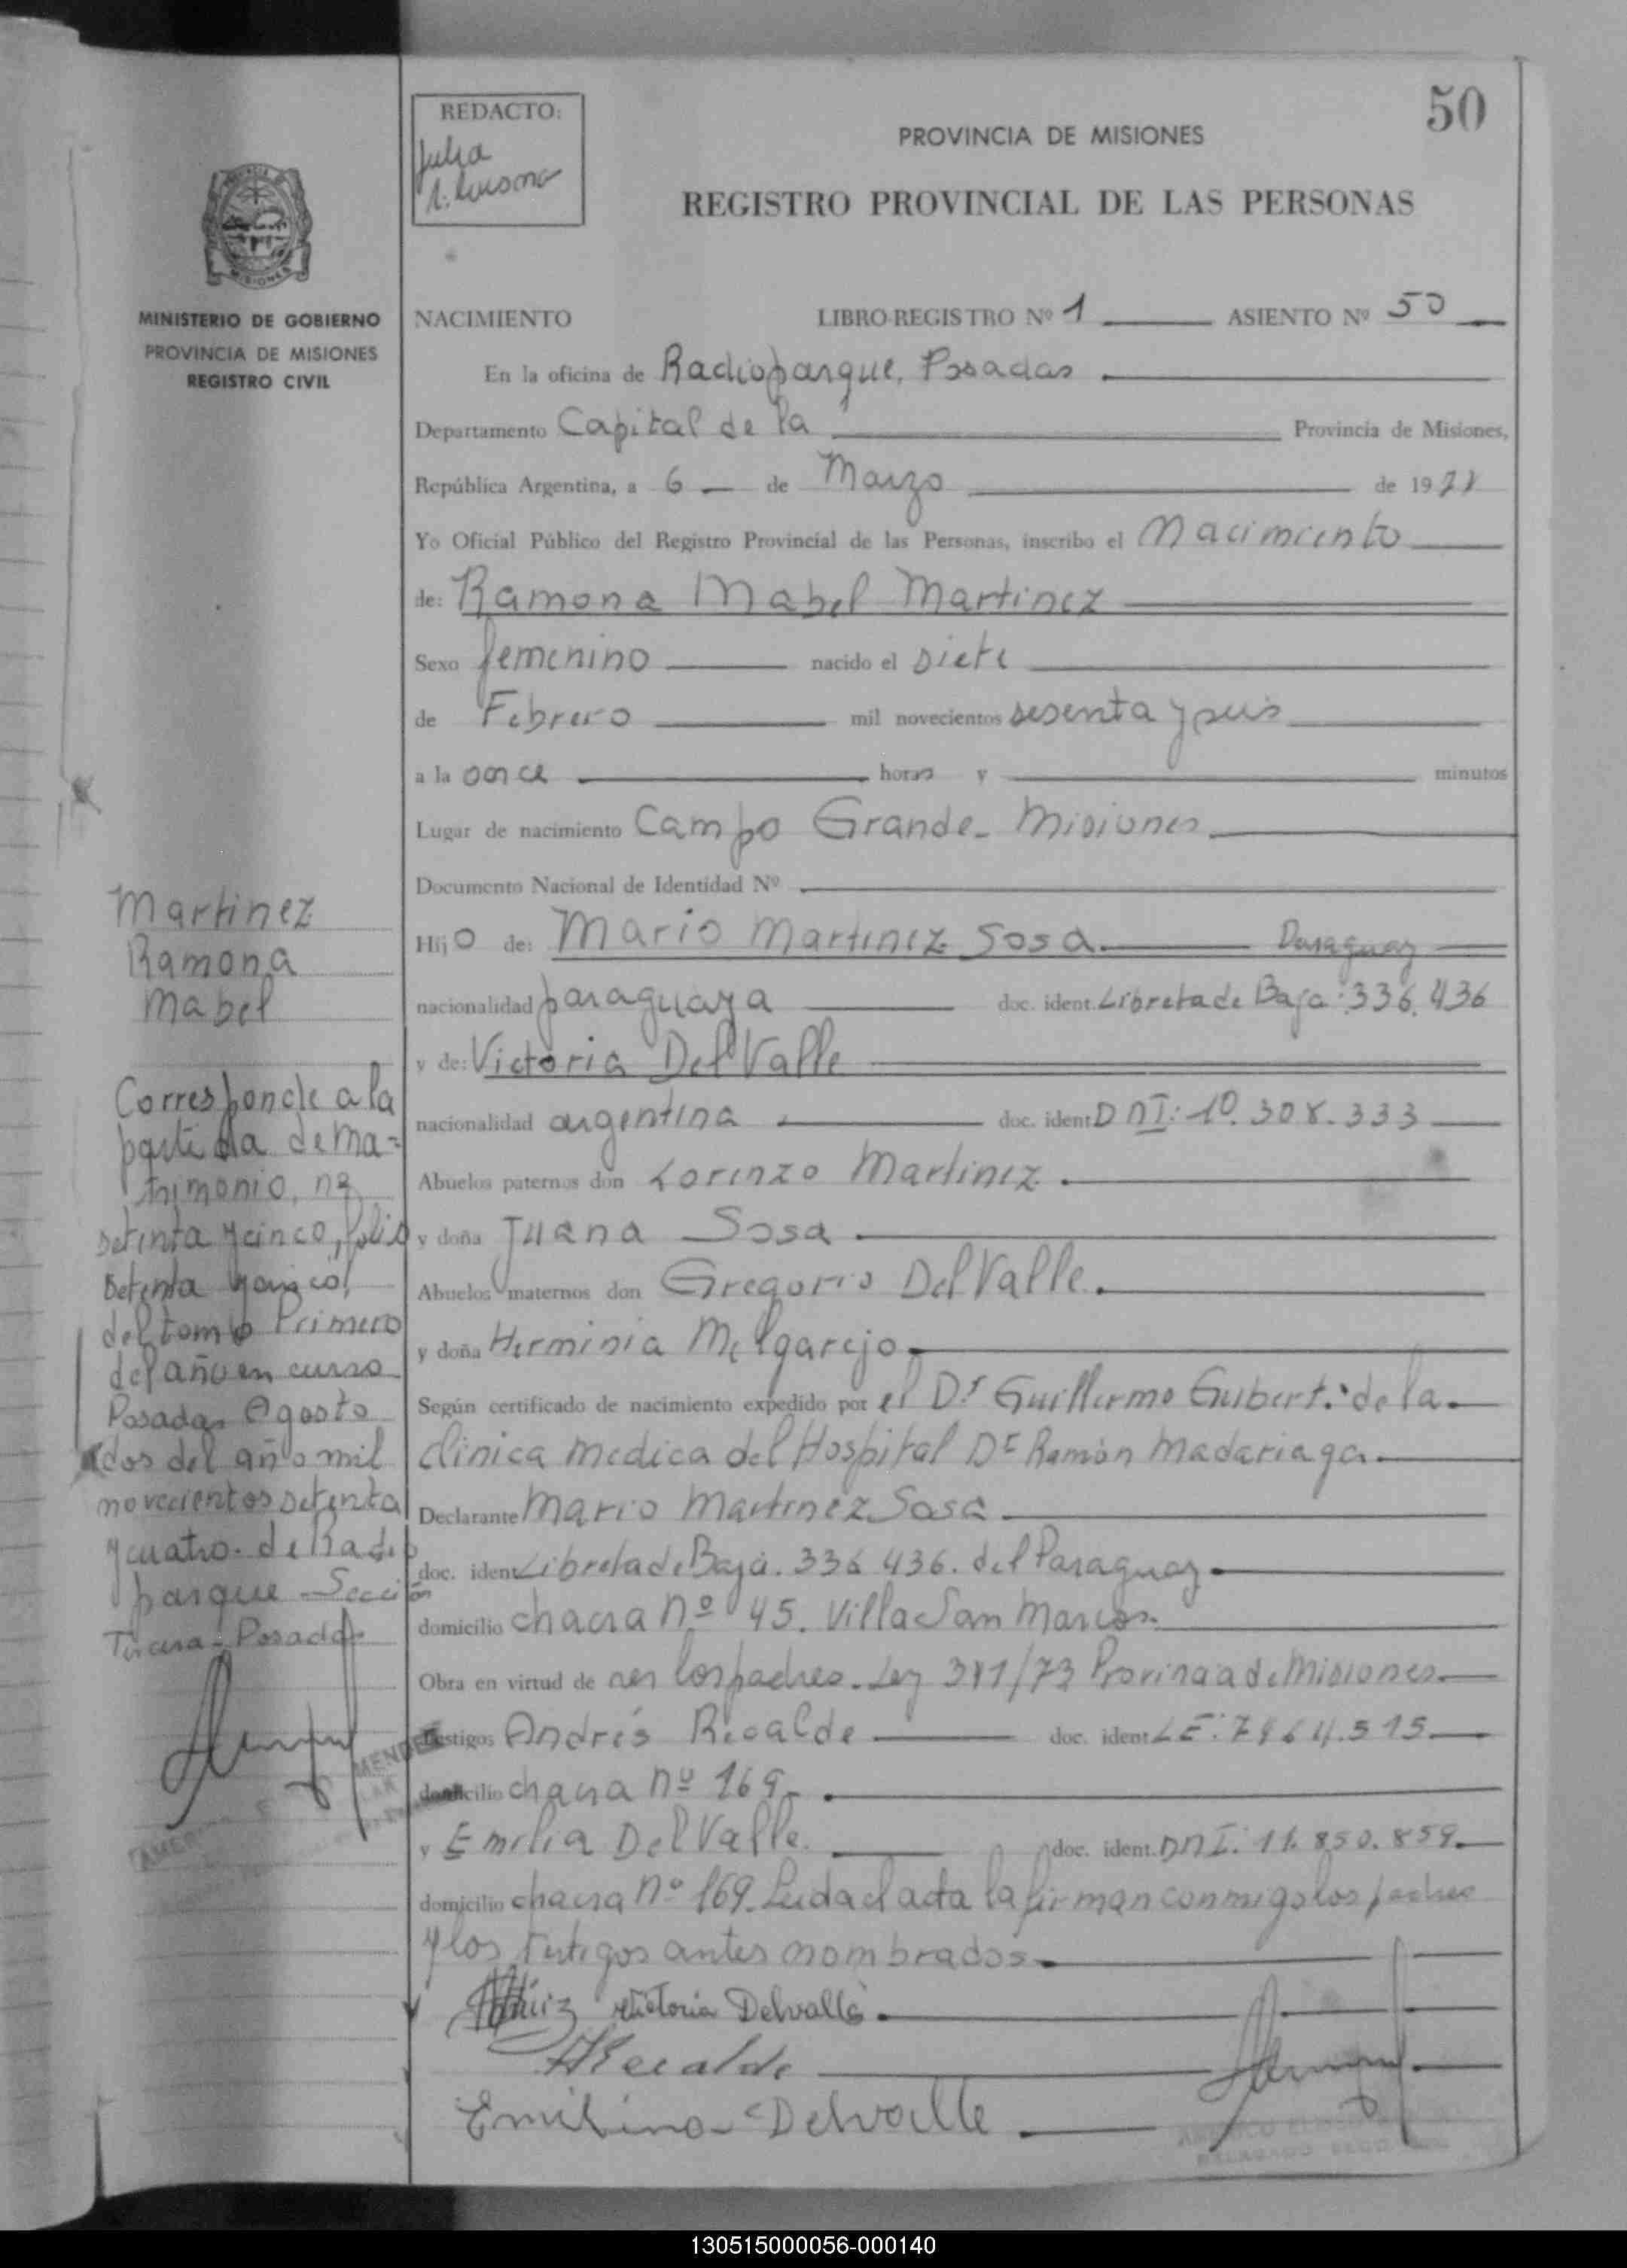 50
REDACTO:
Julia
PROVINCIA DE MISIONES
REGISTRO PROVINCIAL DE LAS PERSONAS
MISIONES
MINISTERIO DE GOBIERNO
PROVINCIA DE MISIONES
REGISTRO CIVIL
NACIMIENTO LIBRO-REGISTRO Nº 1 ASIENTO Nº 50
En la oficina de Radioparque, Posadas
Departamento Capital de la Provincia de Misiones,
República Argentina, a 6 de Marzo de 19
Yo Oficial Público del Registro Provincial de las Personas, inscribo el Nacimiento
de: Ramona Mabel Martinez
Sexo femenino nacido el siete
de Febrero mil novecientos sesenta y seis
a la once horas y minutos
Lugar de nacimiento Campo Grande - Misiones
Documento Nacional de Identidad Nº
Hijo de: Mario Martinez Sosa Paraguay
nacionalidad paraguaya doc. ident. Libreta de Baja: 336.436
y de: Victoria Del Valle
nacionalidad argentina doc. ident DNI: 10.308.333
Abuelos paternos don Lorenzo Martinez
y doña Juana Sosa
Abuelos maternos don Gregorio Del Valle.
y doña Herminia Melgarejo
Según certificado de nacimiento expedido por el Dr Guillermo Gubert. de la
clinica medica del Hospital Dr Ramón Madariaga
Declarante Mario Martinez Sosa
doc. ident Libreta de Baja. 336 436. del Paraguay
domicilio chacra nº 45. Villa San Marcos.
Obra en virtud de ser los padres. Ley 381/73 Provincia de Misiones.
Testigos Andrés Recalde doc. ident LE: 7.964.515
domicilio chacra nº 169
y Emilia Del Valle. doc. ident. DNI: 11.850.859
domicilio chacra nº 169. Leida el acta la firman conmigo los padres
y los testigos antes nombrados
Victoria Delvalle
ARecalde
Emilina Delvalle
Martinez
Ramona
Mabel
Corresponde a la
partida de ma=
trimonio, nº
setenta y cinco, folio
setenta y cinco,
del tomo Primero
del año en curso
Posadas Agosto
dos del año mil
novecientos setenta
y cuatro. de Radio
parque - Sección
Tercera - Posadas
MENDEZ
130515000056-000140